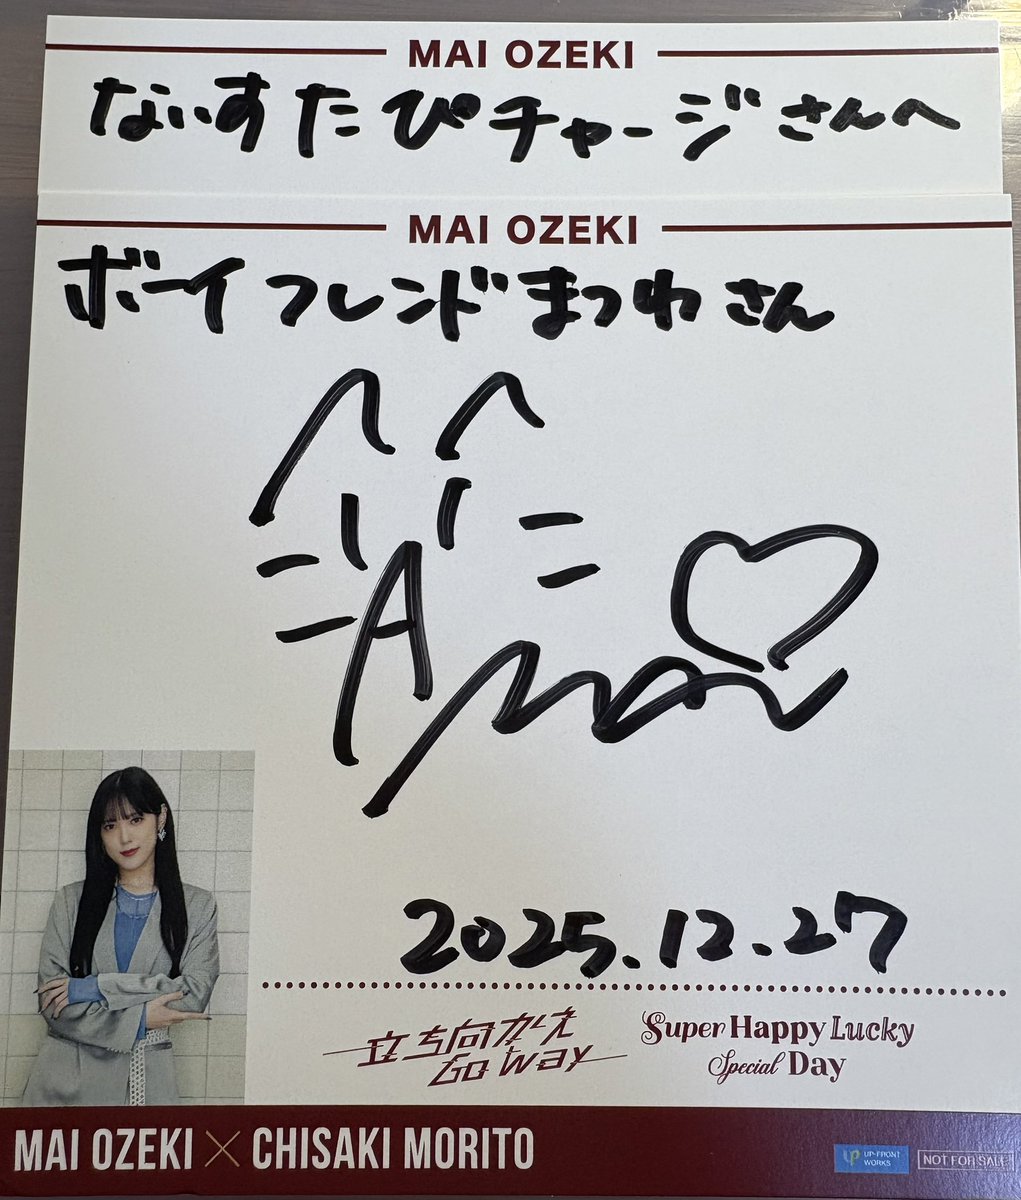 MAI OZEKI
ないすたびチャージさんへ
MAI OZEKI
ボーイフレンドまつわさん
2025.12.27
立ち向かえ
Go Way
Super Happy Lucky
Special Day
MAI OZEKI × CHISAKI MORITO
UP-FRONT
WORKS
NOT FOR SALE